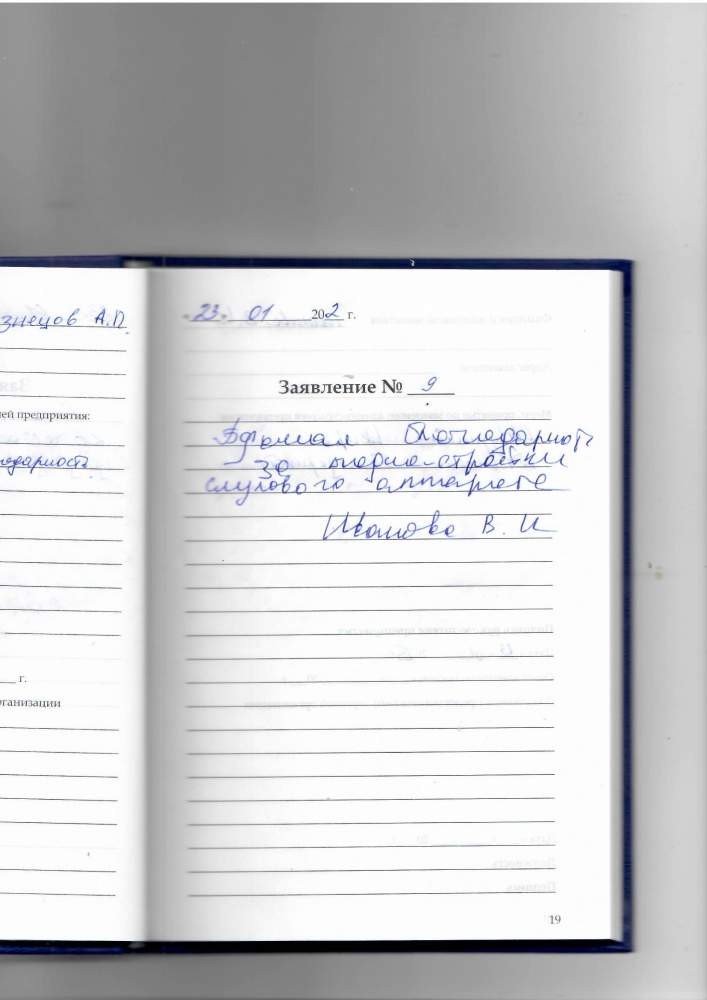 знецов А.П.
ей предприятия:
одарность
г.
рганизации
23 01 202 г.
Заявление № 9
благодарность
за подно-стройки
слухового аппарата
Иванова В. И
19